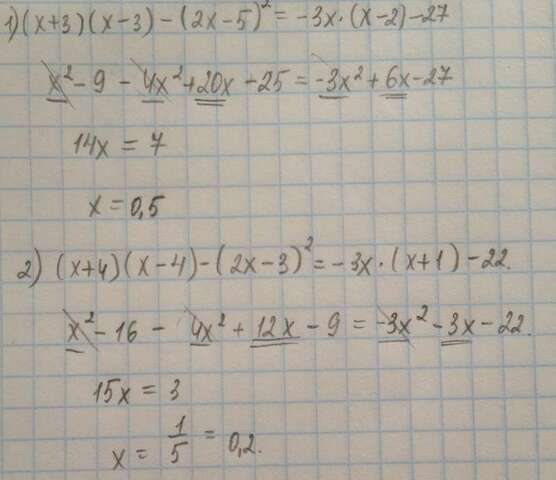 1) (x+3)(x-3)-(2x-5)²=-3x·(x-2)-27
x²-9-4x²+20x-25=-3x²+6x-27
14x=7
x=0,5
2) (x+4)(x-4)-(2x-3)²=-3x·(x+1)-22.
x²-16-4x²+12x-9=-3x²-3x-22.
15x=3
x=1/5=0,2.